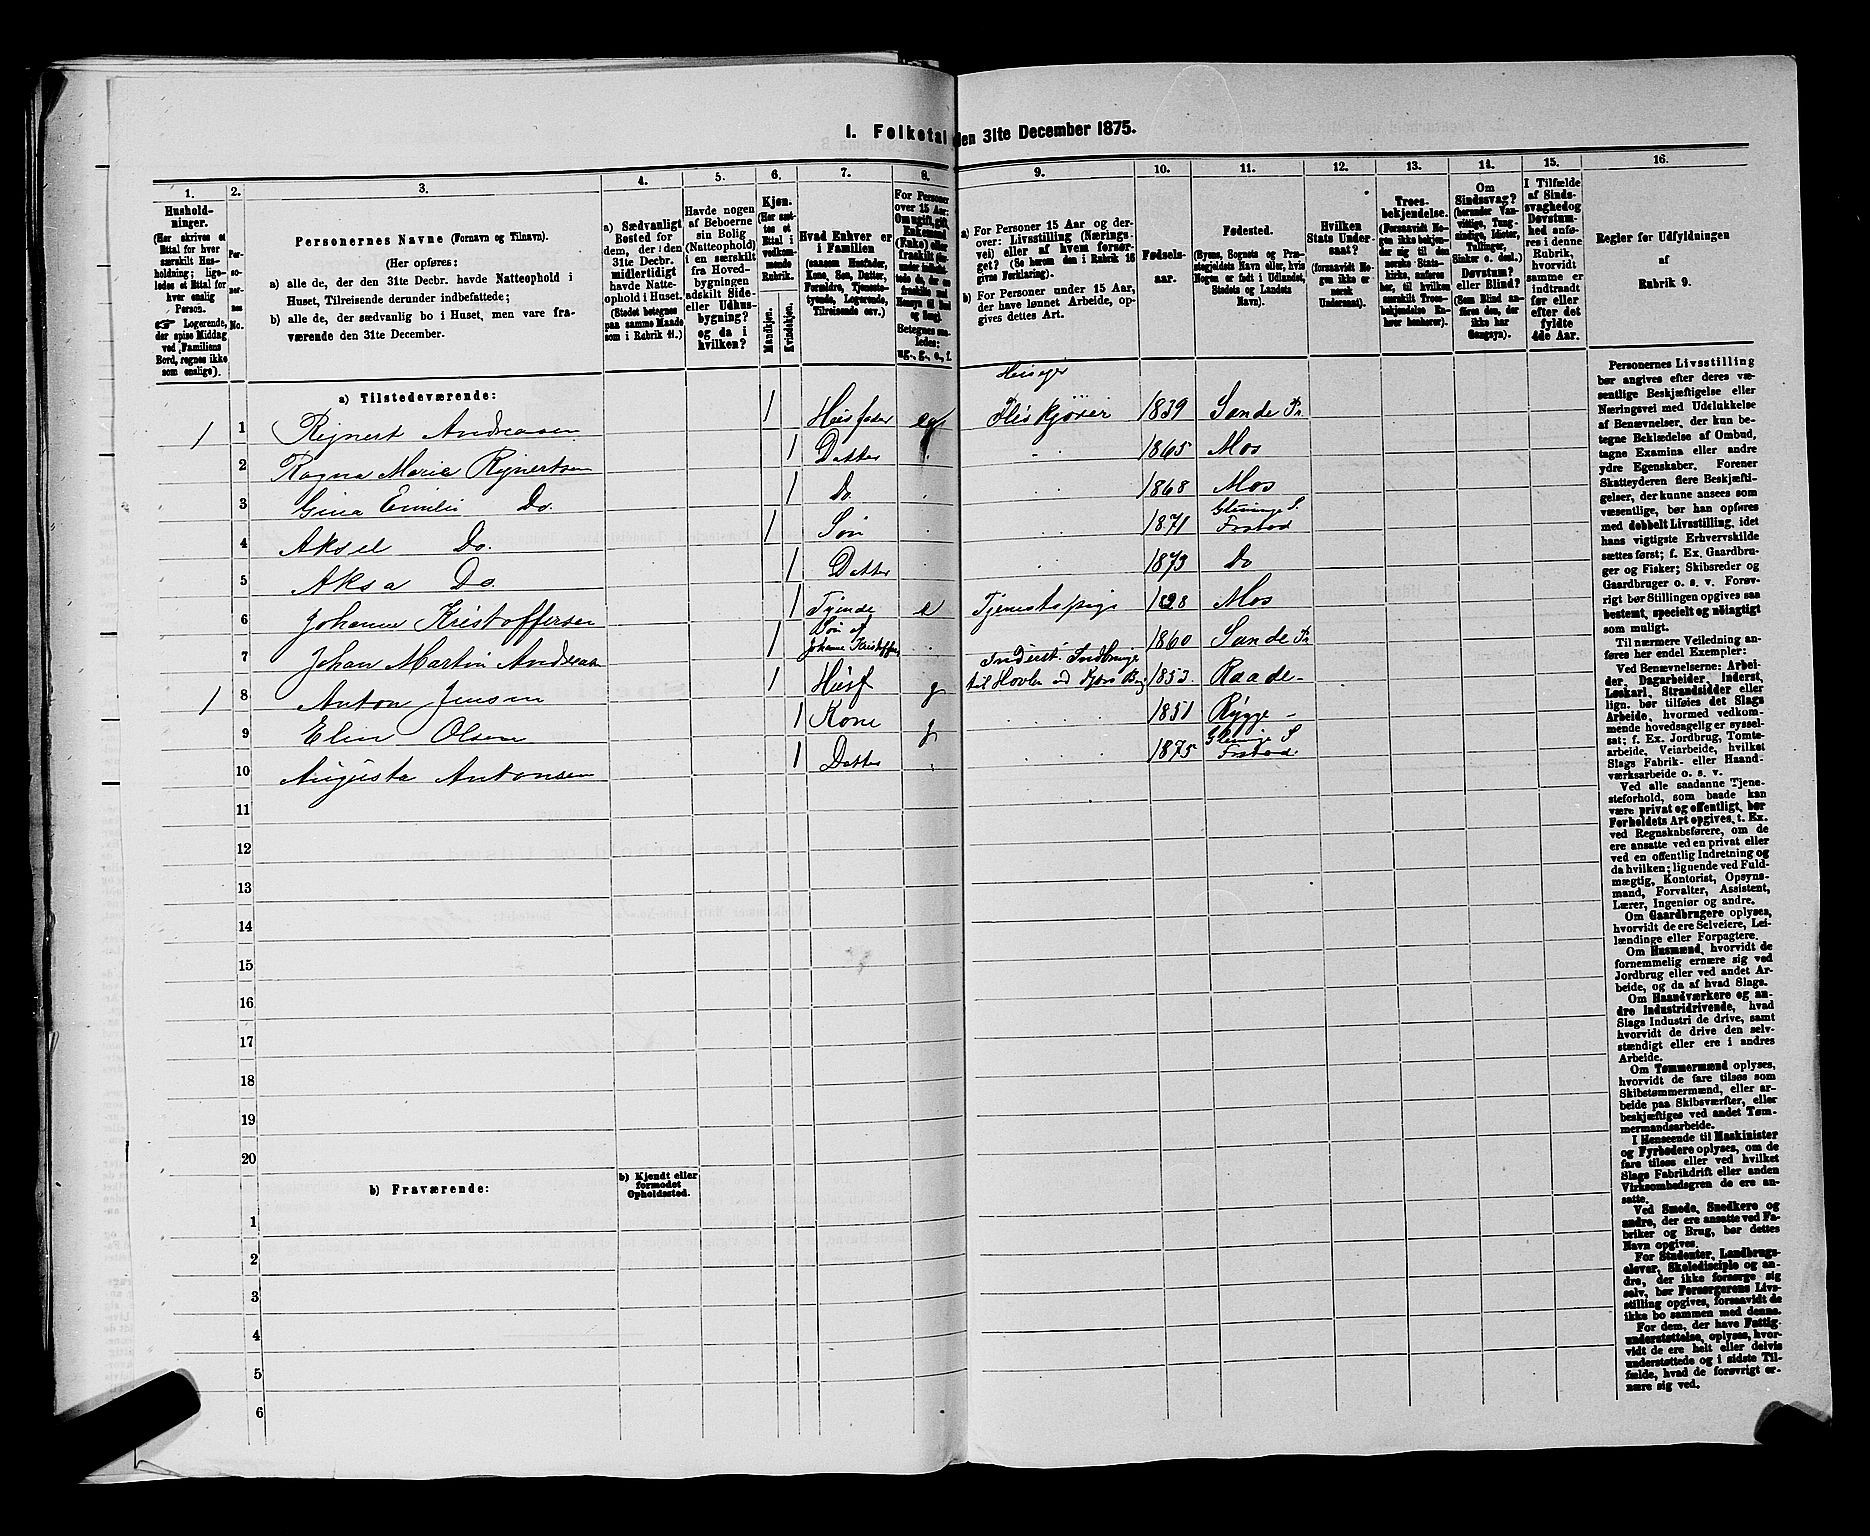 I. Folketal den 31te December 1875.
1. 2. 3. 4. 5. 6. 7. 8. 9. 10. 11. 12. 13. 14. 15. 16.
Hushold-
ninger.
(Her skrives et
Ettal for hver
særskilt Hus-
holdning; lige-
ledes et Ettal for
hver enslig
Person.
☞ Logerende,
der spise Middag
ved Familiens
Bord, regnes ikke
som enslige).
Per-
so-
ner-
nes
No.
Personernes Navne (Fornavn og Tilnavn).
(Her opføres:
a) alle de, der den 31te Decbr. havde Natteophold i
Huset, Tilreisende derunder indbefattede;
b) alle de, der sædvanlig bo i Huset, men vare fra-
værende den 31te December.
a) Sædvanligt
Bosted for
dem, der i den
31te Decbr.
midlertidigt
havde Natte-
ophold i Huset.
(Stedet betegnes
paa samme Maade
som i Rubrik 11.)
Havde nogen
af Beboerne
sin Bolig
(Natteophold)
i en særskilt
fra Hoved-
bygningen
adskilt Side-
eller Udhus-
bygning?
og da i
hvilken?
Kjøn.
(Her sæt-
tes et
Ettal i
vedkom-
mende
Rubrik.
Mandkjøn.
Kvindekjøn.
Hvad Enhver er
i Familien
(saasom Husfader,
Kone, Søn, Datter,
Forældre, Tjeneste-
tyende, Logerende,
Tilreisende osv.)
For Personer
over 15 Aar:
Om ugift, gift,
Enkemand
(Enke) eller
fraskilt
Betegnes saa-
ledes:
ug., g., e., f.
a) For Personer 15 Aar og der-
over: Livsstilling (Nærings-
vei) eller af hvem forsør-
get? (Se herom den i Rubrik 16
givne Forklaring).
b) For Personer under 15 Aar,
der have lønnet Arbeide, op-
gives dettes Art.
Fødsels-
aar.
Fødested.
(Byens, Sognets og Præ-
stegjeldets Navn eller, hvis
Nogen er født i Udlandet,
Stedets og Landets
Navn).
Hvilken
Stats Under-
saat?
(forsaavidt No-
gen ikke er
norsk
Undersaat).
Troes-
bekjendelse.
(Forsaavidt No-
gen ikke bekjen-
der sig til den
norske Stats-
kirke, anføres
her, til hvilken
særskilt Troes-
bekjendelse En-
hver henhører).
Om
Sindssvag?
(herunder Van-
vittige, Tung-
sindige, Idioter,
Tullinger,
Sinker o. desl.)
Døvstum?
eller Blind?
(Som Blind an-
føres den, der
ikke har
Gangsyn).
I Tilfælde
af Sinds-
svaghed og
Døvstum-
hed anfø-
res i denne
Rubrik,
hvorvidt
samme er
indtraadt
før eller
efter det
fyldte
4de Aar.
Regler for Udfyldningen
af
Rubrik 9.
a) Tilstedeværende:
Huseier
1 1 Rejnert Andreasen 1 Husfader Fliskjører 1839 Sande Pr.
2 Ragna Marie Rejnertsen 1 Datter 1865 Mos
3 Gina Emilie Do. 1 Do 1868 Mos
4 Aksel Do. 1 Søn 1871 Glemmge S. Frstad
5 Aksa Do 1 Datter 1873 Do
6 Johanne Kristoffersen 1 Tyende e Tjenestepige 1828 Mos
7 Johan Martin Andreasen 1 Søn af Johanne Kristoffers. 1860 Sande Pr
1 8 Anton Jensen 1 Husf g Inderst. til Hovlen 1853. Raade
9 Elin Olsen 1 Kone g 1851 Rygge
10 Augusta Antonsen 1 Datter 1875 Glemmge S Frstad.
11
12
13
14
15
16
17
18
19
20
b) Fraværende:
b) Kjendt eller
formodet
Opholdssted.
1
2
3
4
5
6
Personernes Livsstilling
bør angives efter deres væ-
sentlige Beskjæftigelse eller
Næringsvei med Udelukkelse
af Benævnelser, der kun be-
tegne Beklædelse af Ombud,
tagne Examina eller andre
ydre Egenskaber. Forener
Skatteyderen flere Beskjæfti-
gelser, der kunne ansees som
væsentlige, bør han opføres
med dobbelt Livsstilling, idet
hans vigtigste Erhvervskilde
sættes først; f. Ex. Gaardbru-
ger og Fisker; Skibsreder og
Gaardbruger o. s. v. Forøv-
rigt bør Stillingen opgives saa
bestemt, specielt og nøiagtigt
som muligt.
Til nærmere Veiledning an-
føres her endel Exempler:
Ved Benævnelserne: Arbei-
der, Dagarbeider, Inderst,
Løskarl, Strandsidder eller
lign. bør tilføies det Slags
Arbeide, hvormed vedkom-
mende hovedsagelig er syssel-
sat; f. Ex. Jordbrug, Tomte-
arbeide, Veiarbeide, hvilket
Slags Fabrik- eller Haand-
værksarbeide o. s. v.
Ved alle saadanne Tjene-
steforhold, som baade kan
være privat og offentligt, bør
Forholdets Art opgives, t. Ex.
ved Regnskabsførere, om de
ere ansatte ved en privat eller
ved en offentlig Indretning og
da hvilken; lignende ved Fuld-
mægtig, Kontorist, Opsyns-
mand, Forvalter, Assistent,
Lærer, Ingeniør og andre.
Om Gaardbrugere oplyses,
hvorvidt de ere Selveiere, Lei-
lændinge eller Forpagtere.
Om Husmænd, hvorvidt de
fornemmelig ernære sig ved
Jordbrug eller ved andet Ar-
beide, og da af hvad Slags.
Om Haandværkere og an-
dre Industridrivende, hvad
Slags Industri de drive, samt
hvorvidt de drive den selv-
stændigt eller ere i andres
Arbeide.
Om Tømmermænd oplyses,
hvorvidt de fare tilsøs som
Skibstømmermænd, eller ar-
beide paa Skibsværfter, eller
beskjæftiges ved andet Tøm-
mermandsarbeide.
I Henseende til Maskinister
og Fyrbødere oplyses, om de
fare tilsøs eller ved hvilket
Slags Fabrikdrift eller anden
Virksomhedsgren de ere an-
satte.
Ved Smede, Snedkere og
andre, der ere ansatte ved Fa-
briker og Brug, bør dettes
Navn opgives.
For Studenter, Landbrugs-
elever, Skoledisciple og an-
dre, der ikke forsørge sig
selv, bør Forsørgerens Livs-
stilling opgives, forsaavidt de
ikke bo sammen med denne.
For dem, der have Fattig-
understøttelse, oplyses, hvor-
vidt de ere helt eller delvis
understøttede og i sidste Til-
fælde, hvad de forøvrigt er-
nære sig ved.